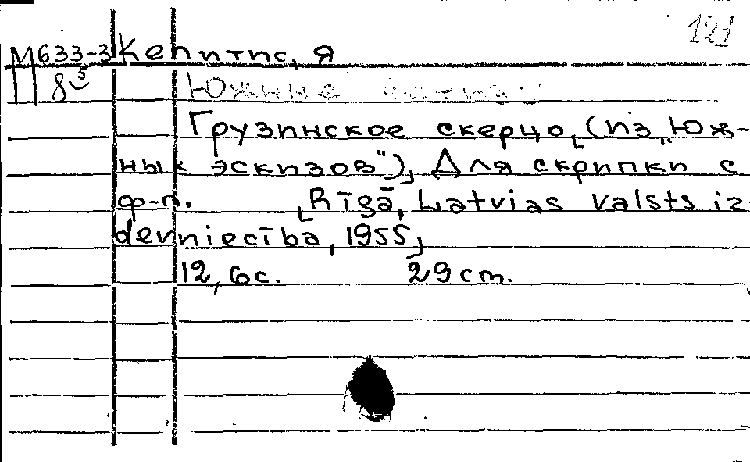 121
М633-3 Кепитис, Я
8⁵
Южные
Грузинское скерцо, (из „Юж-
ных эскизов"), Для скрипки с
ф-п. [Rīgā, Latvias valsts iz-
devniecība, 1955]
12, 6с. 29 cm.